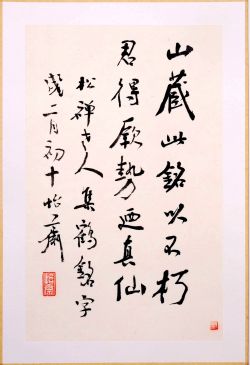 山藏此銘以不朽
君得厥勢迺真仙
松禪老人集鶴銘字
二月初十